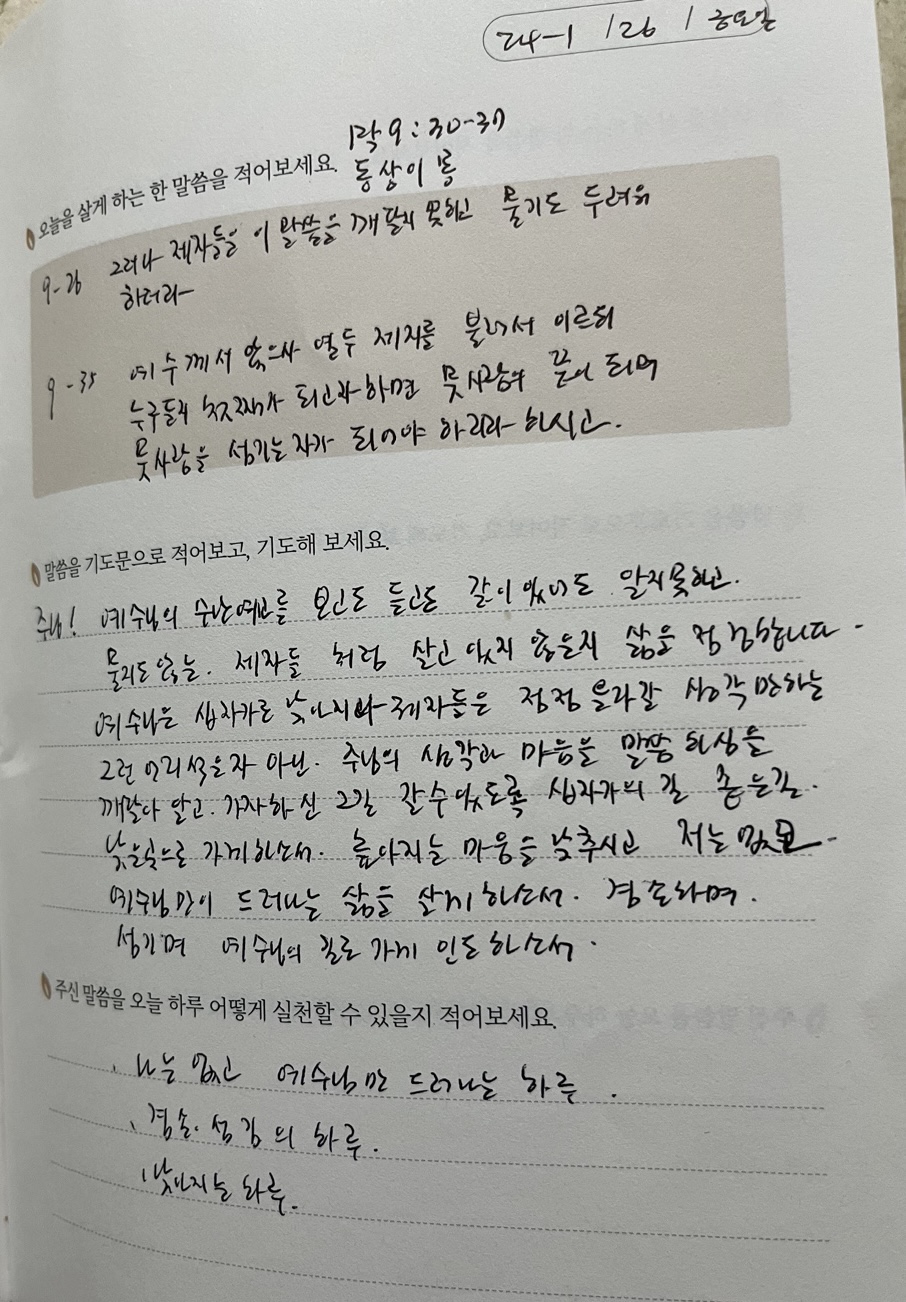 24-1 / 26 / 금요일
막 9:30-37
동상이몽
오늘을 살게 하는 한 말씀을 적어보세요.
그러나 제자들은 이 말씀을 깨닫지 못하고 묻기도 두려워
하더라
9-35 예수께서 앉으사 열두 제자를 불러서 이르되
누구든지 첫째가 되고자 하면 뭇사람의 끝이 되며
뭇사람을 섬기는 자가 되어야 하리라 하시고.
말씀을 기도문으로 적어보고, 기도해 보세요.
주님! 예수님의 수난예고를 보고도 듣고도 같이 있어도 알지 못하고.
묻지도 않는. 제자들 처럼 살고 있지 않은지 삶을 점검합니다.
예수님은 십자가로 낮아지나 제자들은 점점 올라갈 생각만하는
그런 어리석은자 아닌. 주님의 생각과 마음을 말씀
깨달아 알고. 가자하신 그길 갈수 있도록 십자가의 길 좁은길.
가게하소서. 높아지는 마음을 낮추시고 저는 없고
예수님만이 드러나는 삶을 살게 하소서. 겸손하며.
섬기며 예수님의 길로 가게 인도하소서.
주신 말씀을 오늘 하루 어떻게 실천할 수 있을지 적어보세요.
나는 없고 예수님만 드러나는 하루.
겸손. 섬김의 하루.
낮아지는 하루.